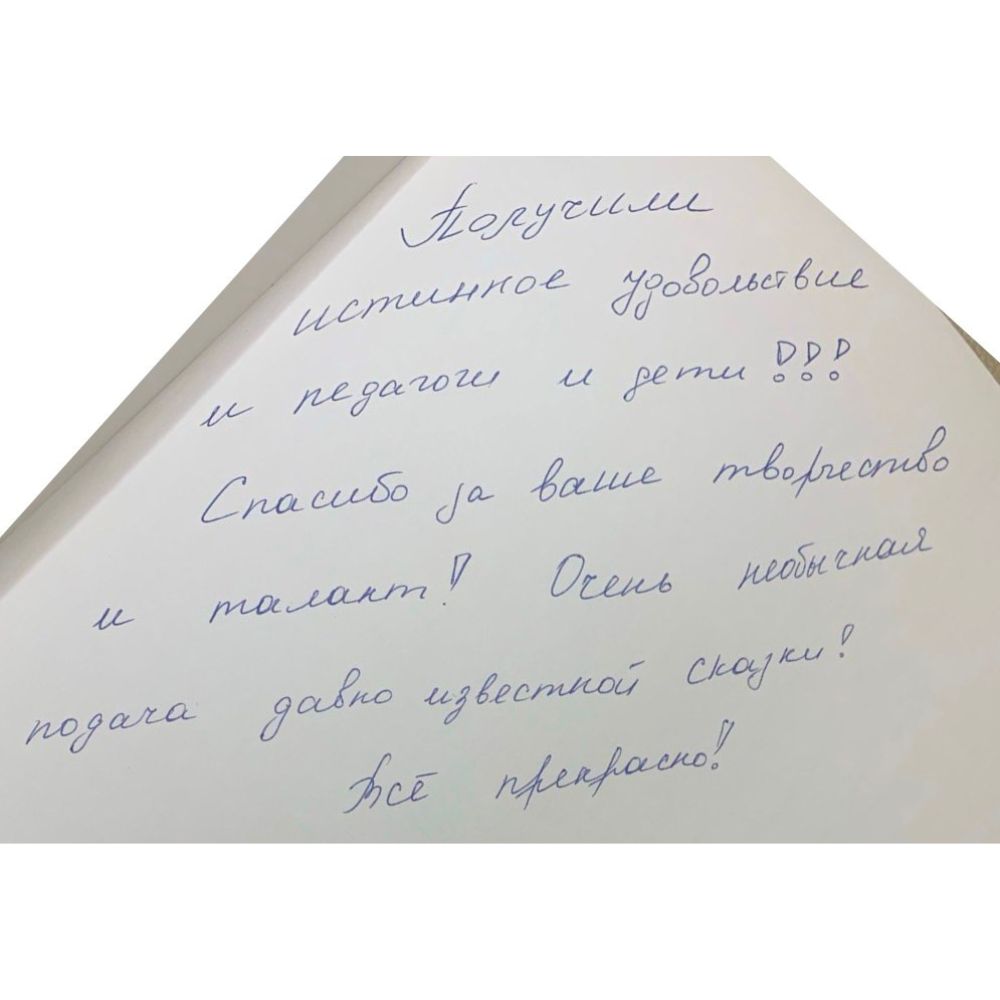 Получили
истинное удовольствие
и педагоги и дети!!!
Спасибо за ваше творчество
и талант! Очень необычная
подача давно известной сказки!
Всё прекрасно!